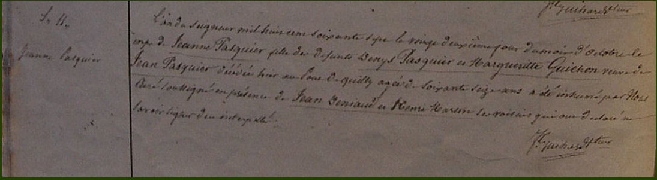 S. 11.
Jeanne Pasquier
L'an du seigneur mil huit cent soixante sept le vingt deuxième jour du mois d'Octobre le
corps de Jeanne Pasquier fille de défunts Denys Pasquier et Marguerite Guichon veuve de
Jean Pasquier décédée hier au de Quilly agée de soixante seize ans a été inhumé par Nous
Curé soussigné en présence de Jean et ses voisins qui ont déclaré ne
savoir signer de ce interpellé.